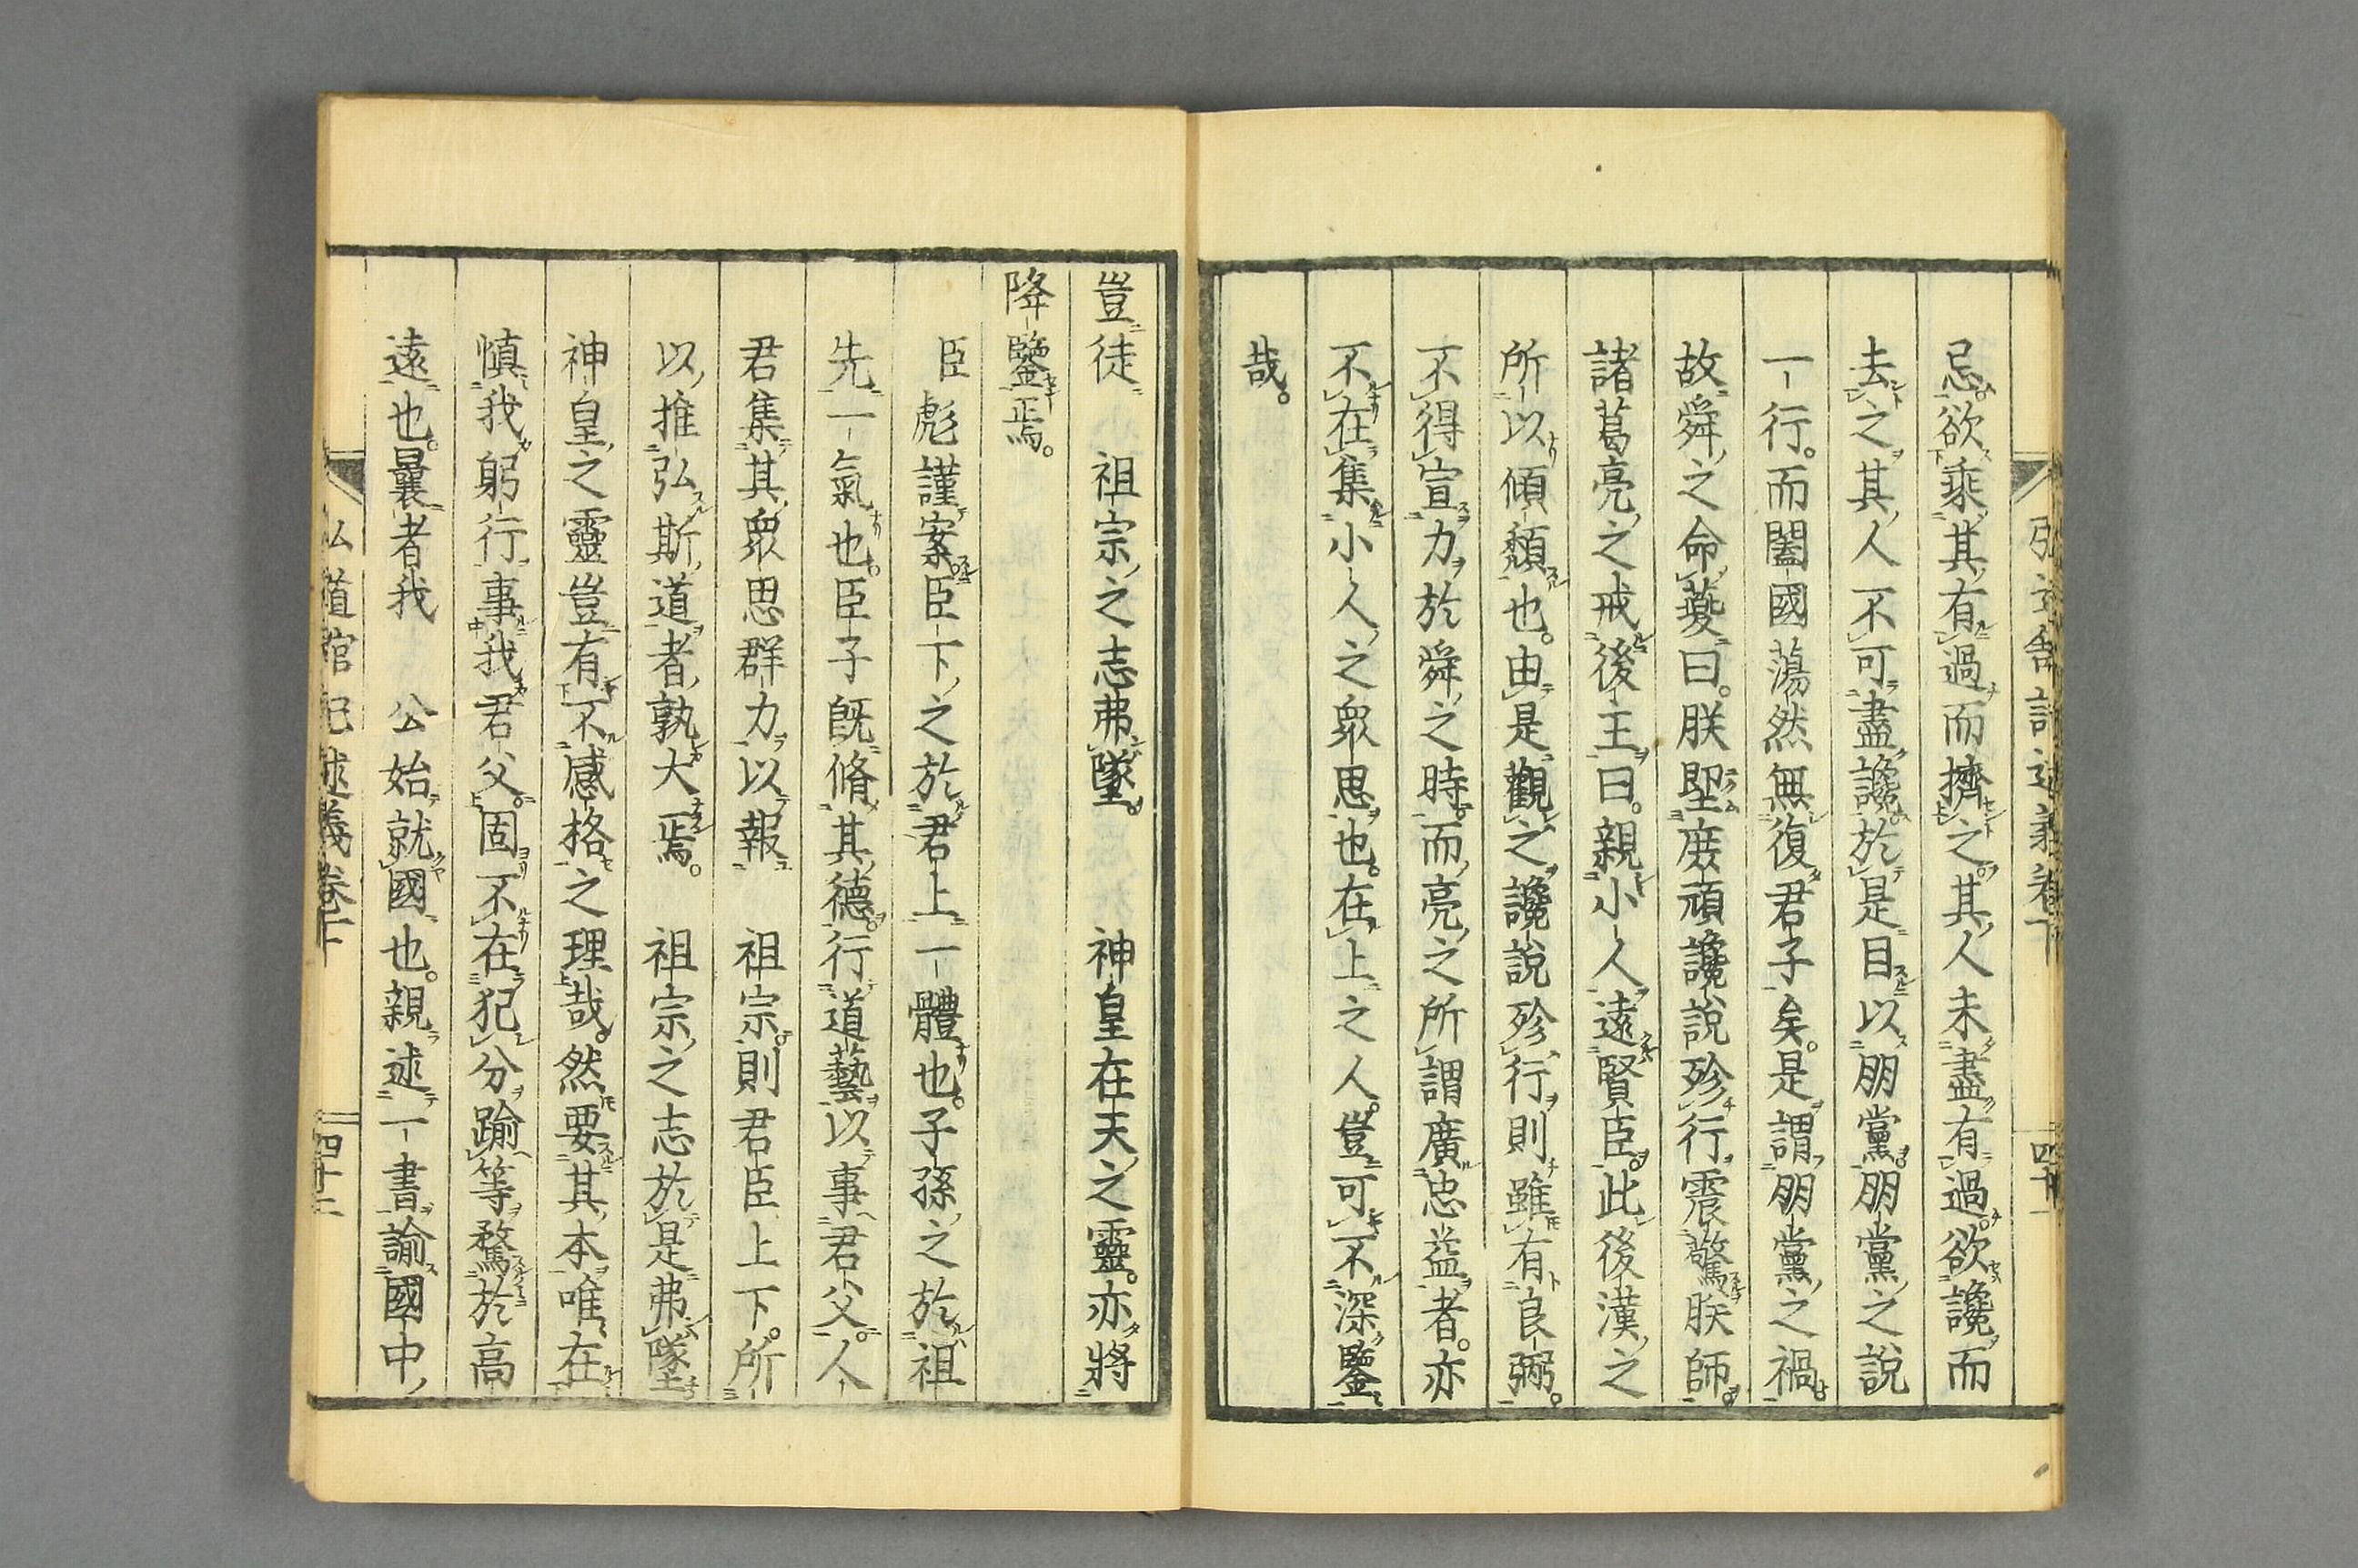 弘道館記述義卷下
四十一
忌。欲乘其有過而擠之。其人未盡有過。欲讒而
去之。其人不可盡讒。於是目以朋黨。朋黨之說
一行。而闔國蕩然無復君子矣。是謂朋黨之禍。
故舜之命夔曰。朕堲庶頑讒說殄行震驚朕師。
諸葛亮之戒後主曰。親小人遠賢臣。此後漢之
所以傾頹也。由是觀之。讒說殄行。則雖有良弼。
不得宣力於舜之時。而亮之所謂廣忠益者。亦
不在集小人之眾思也。在上之人。豈可不深鑒
哉。
豈徒　祖宗之志弗墜。　神皇在天之靈。亦將
降鑒焉。
臣彪謹案。臣下之於君上一體也。子孫之於祖
先一氣也。臣子既脩其德。行道藝以事君父。人
君集其眾思群力以報　祖宗。則君臣上下。所
以推弘斯道者。孰大焉。　祖宗之志於是弗墜。
神皇之靈豈有不感格之理哉。然要其本。唯在
慎我躬行事我君父。固不在犯分踰等騖於高
遠也。曩者我　公始就國也。親述一書諭國中。
弘道館記述義卷下
四十二